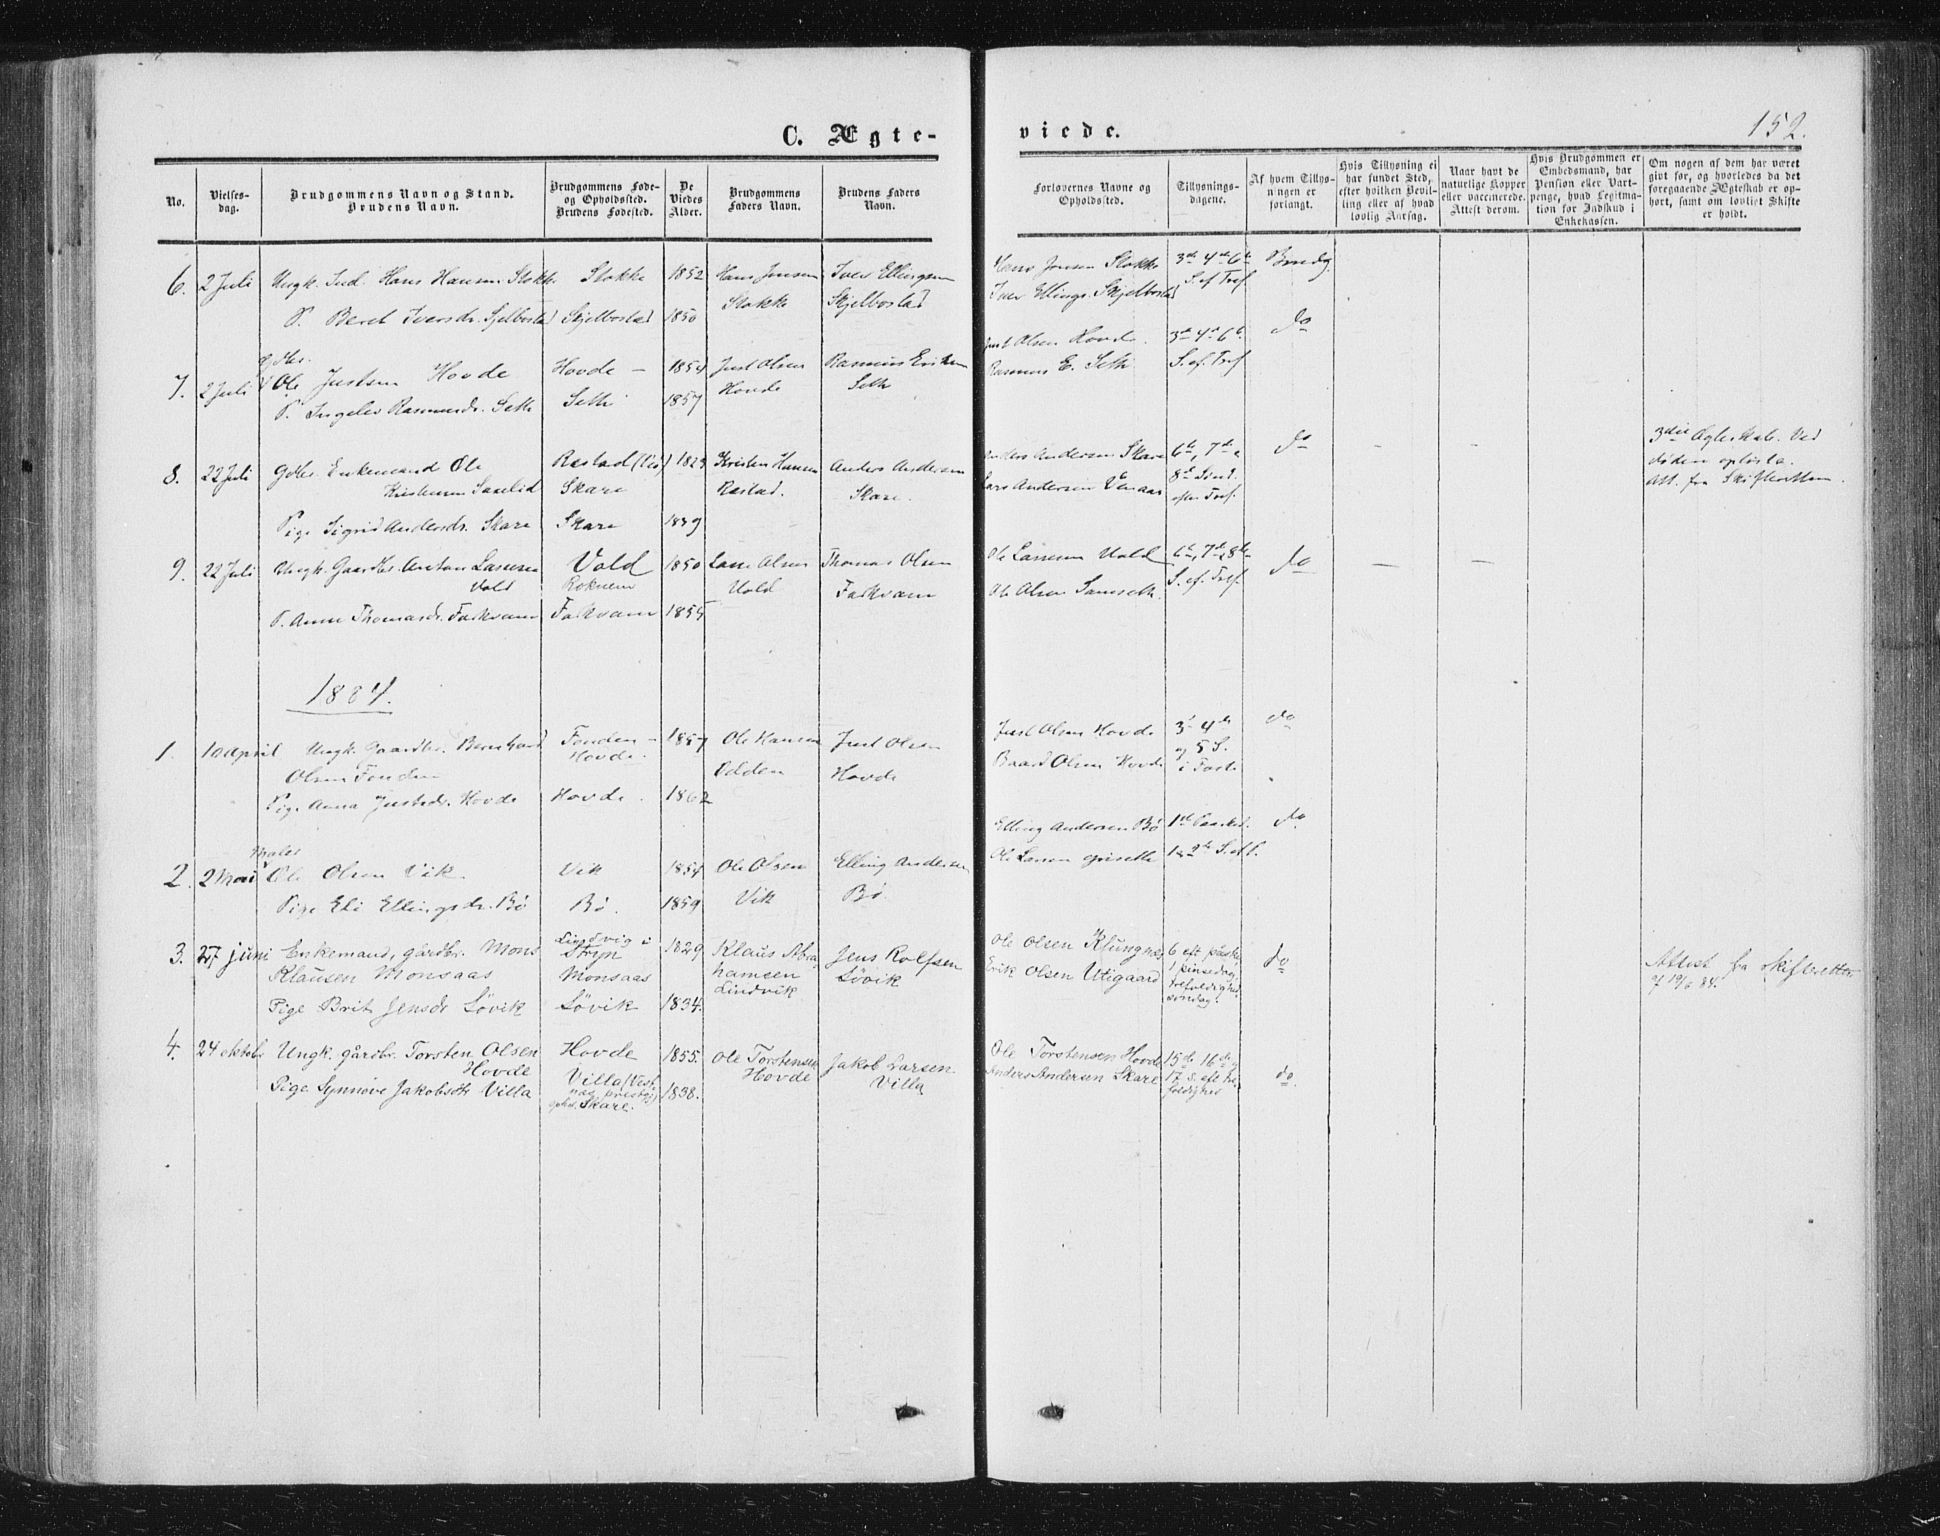 C. Ægte-
viede.
152.
No.
Vielses-
dag.
Brudgommens Navn og Stand.
Brudens Navn.
Brudgommens Føde-
og Opholdssted.
Brudens Fødested.
De
Viedes
Alder.
Brudgommens
Faders Navn.
Brudens Faders
Navn.
Forlovernes Navne og
Opholdssted.
Tillysnings-
dagene.
Af hvem Tillys-
ningen er
forlangt.
Hvis Tillysning ei
har fundet Sted,
efter hvilken Bevil-
ling eller af hvad
lovlig Aarsag.
Naar havt de
naturlige Kopper
eller vaccinerede.
Attest derom.
Hvis Brudgommen er
Embedsmand, har
Pension eller Vart-
penge, hvad Legitma-
tion for Indskud i
Enkekassen.
Om nogen af dem har været
givt før, og hvorledes da det
foregaaende Ægteskab er op-
hørt, samt om lovligt Skifte
er holdt.
6. 2 Juli Ungk. Ind. Hans Hansen Stokke Stokke 1852 Hans Jensen Iver Ellingsen
Stokke Skjelbostad
P. Beret Iversdr. Sjelbostad Skjelbostad 1850
Hans Jensen Stokke 3de 4de 6te Brudg.
Iver Ellings. Skjelbostad S. ef Tref
7. 2 Juli Gdbr.
Ole Justsen Hovde Hovde 1854 Just Olsen Rasmus Eriksen
Hovde Seth
P. Ingelev Rasmusdr. Seth Seth 1857
Just Olsen Hovde. 3de 4de 6te do
Rasmus E. Seth S. ef. Tref
8. 22 Juli Gdbr. Enkemand Ole Røstad 1829 Kristen Hansen Anders Andersen
Kristensen Skare Røstad. Skare.
Pige Sigrid Andersdr. Skare Skare 1839
Anders Andersen Skare 6te, 7de, do - -
Lars Andersen Venaas 8de Sønd.
efter Tref.
3die Ægteskab. Ved
døden opløste.
Att. fra Skifteretten.
9. 22 Juli Ungk. Gaardbr. Anton Lassesen Vold 1850 Lasse Olsen Thomas Olsen
Vold Vold Fæikvam
P. Anne Thomasdr. 1855
Ole Lassesen Vold 6te, 7de, 8de do — —
Ole Olsen S. ef. Tref.
1884.
1. 10 April Ungk. Gaardbr. Bernhard Fonden - 1857 Ole Hansen Just Olsen
Olsen Fonden Hovde. Odden Hovde
Pige Anna Justsdr. Hovde Hovde. 1862
Just Olsen Hovde 3de 4de do
Baard Olsen Hovde og 5 S.
i Faste
2. 2 Mai Maler
Ole Olsen Vik. Vik 1854 Ole Olsen Elling Andersen
Vik Bø.
Pige Eli Ellingsdr. Bø Bø. 1859
Elling Andersen Bø 1ste Paaskd. do.
Ole Larsen
3. 27 juni Enkemand, gårdbr. Mons Lindvig i 1829 Klaus Abra- Jens Rolfsen
Klausen Monsaas Stryn hamsen Løvik
Monsaas Lindvik
Pige Brit Jensdr Løvik Løvik 1834.
Ole Olsen Klungnes 6 eft påske, do
Erik Olsen Utigaard 1 pinsedag,
trefoldigheds
søndag.
Attest fra skifteretten
af 19/6 84.
4. 24 oktobr Ungk. gårdbr. Torsten Olsen Hovde 1855. Ole Torstensen Jakob Larsen
Hovde Hovde Villa
Pige Synnøve Jakobsdtr Villa Villa (Vest- 1838.
nes prestgj)
opho. Skare.
Ole Torstensen Hovde 15de 16de og do.
Anders Andersen Skare 17 S. eft tre-
foldighed